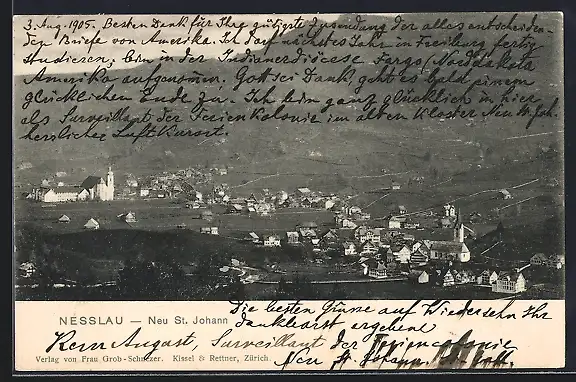 3. Aug. 1905. Besten Dank für Ihre gütigste Zusendung der alles entscheiden-
den Briefe von Amerika. Ich darf nächstes Jahr in Freiburg fertig
studieren, bin in der Indianerdiöcese Fargo (Norddakota
Amerika aufgenommen. Gott sei Dank, geht es bald einem
glücklichen Ende zu. Ich bin ganz glücklich in hier
als Surveillant der Ferienkolonie im alten Kloster Neu St. Joh.
herrlicher Luftkurort.
Die besten Grüsse auf Wiedersehn Ihr
dankbarst ergebene
NESSLAU — Neu St. Johann
August, Surveillant der Feriencolonie
Neu St. Johann, St. Gall.
Verlag von Frau Grob-Schnezer. Kissel & Rettner, Zürich.